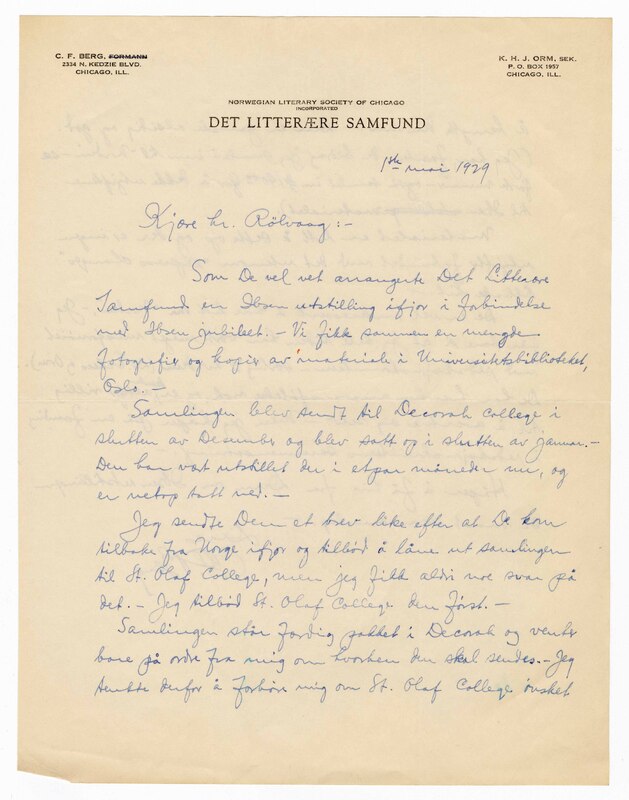 C. F. BERG, FORMANN
2334 N. KEDZIE BLVD.
CHICAGO, ILL.
K. H. J. ORM, SEK.
P. O. BOX 1957
CHICAGO, ILL.
NORWEGIAN LITERARY SOCIETY OF CHICAGO
INCORPORATED
DET LITTERÆRE SAMFUND
1ste mai 1929
Kjære hr. Rölvaag:-
Som De vel vet arrangerte Det Litterære
Samfund en Ibsen utstilling ifjor i forbindelse
med Ibsen jubileet. - Vi fikk sammen en mengde
fotografier og kopier av materiale i Universitetsbiblioteket,
Oslo. -
Samlingen blev sendt til Decorah College i
slutten av Desember og blev satt op i slutten av januar. -
Den har vært utstillet der i et par måneder nu, og
er netop tatt ned. -
Jeg sendte Dem et brev like efter at De kom
tilbake fra Norge ifjor og tilbød å låne ut samlingen
til St. Olaf College, men jeg fikk aldri noe svar på
det. - Jeg tilbød St. Olaf College den først. -
Samlingen står færdig pakket i Decorah og venter
bare på ordre fra mig om hvorhen den skal sendes. - Jeg
tenkte derfor å forhøre mig om St. Olaf College ønsket